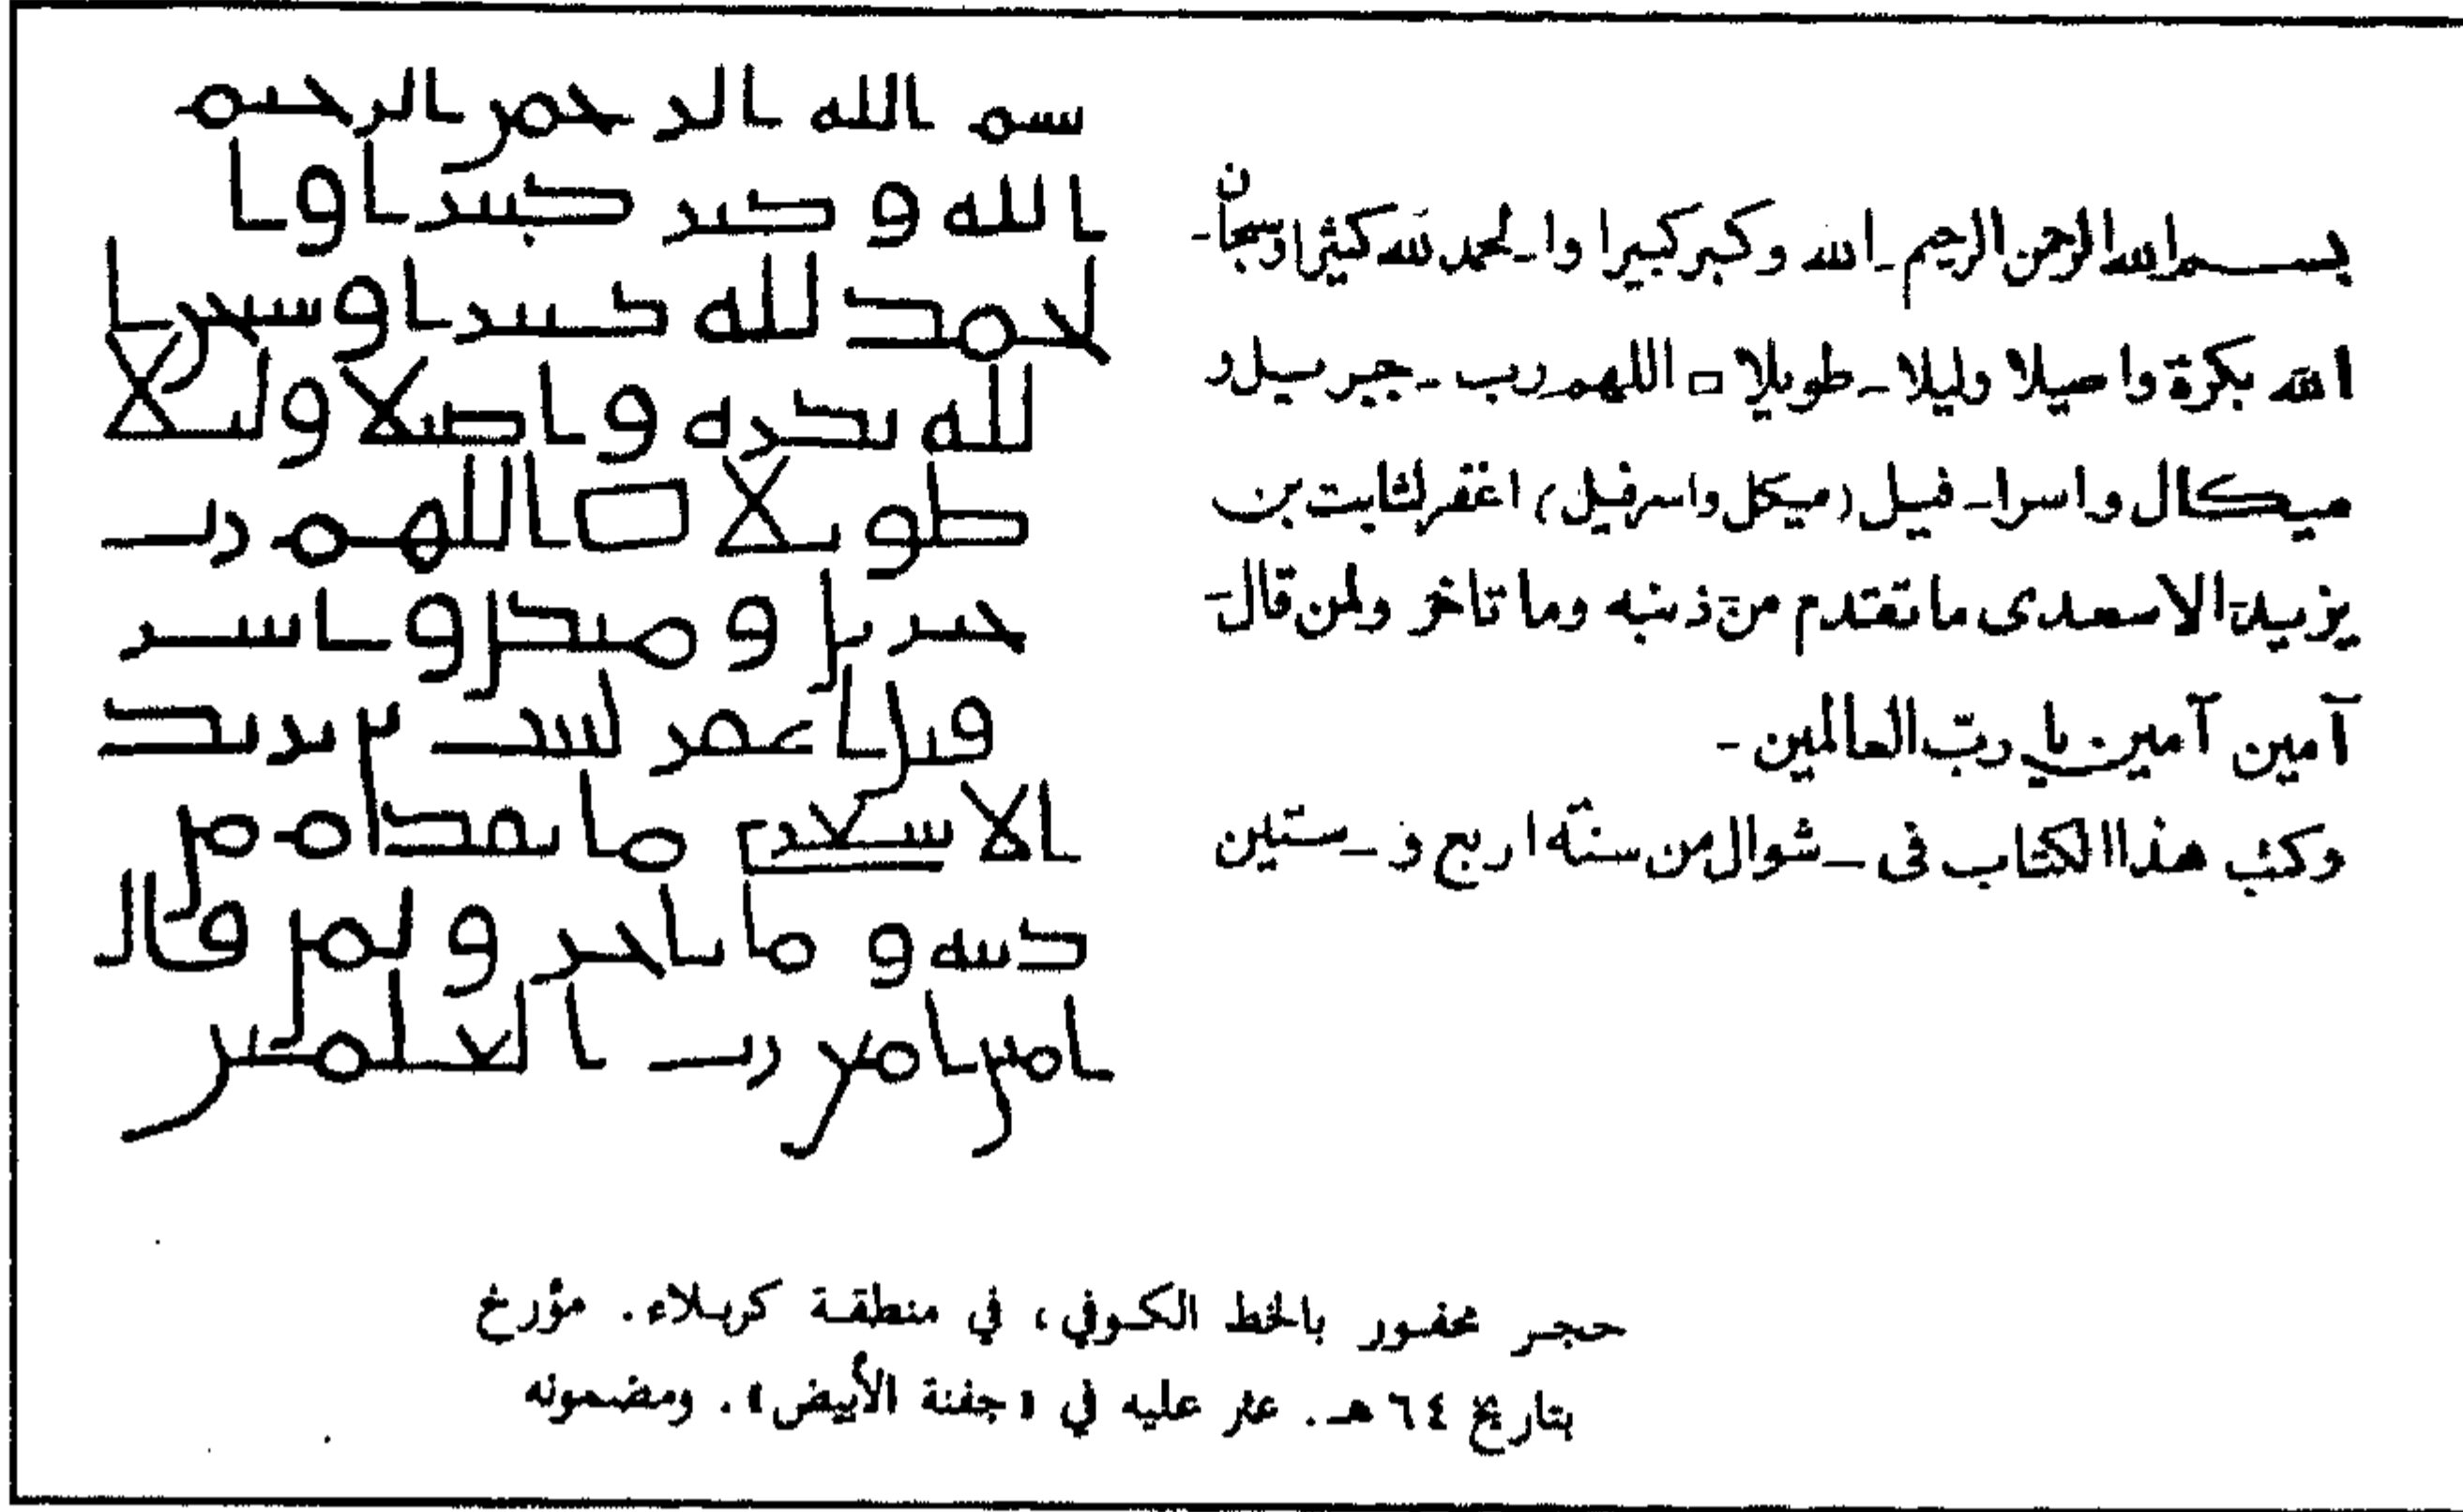 سم الله الرحمن الرحيم
الله و كبر كبيرا و ا
لحمد لله كثيرا و سبحن ا
لله بكره و اصيلا و ليلا
طويلا اللهم رب
جبريل و ميكل و اسر
فيل اغفر لثبت بن يزيد
الاسعدي ما تقدم من
ذنبه و ما تاخر و لمن قال
امين امين رب العلمين
بسم الله الرحمن الرحيم ـ الله وكبر كبيرا وا ـ لحمد لله كثيرا وسبحان ـ
الله بكرة واصيلا وليلا ـ طويلا □ اللهم رب ـ جبرييل و
ميكال واسرا ـ فيل (ميكل واسرفيل) اغفر لثابت بن
يزيد الاسعدى ما تقدم من ذنبه وما تاخر ولمن قال ـ
آمين آمين يا رب العالمين ـ
وكتب هذا الكتاب فى ـ شوال من سنة اربع و ـ ستين
حجر محفور بالخط الكوفي، في منطقة كربلاء. مؤرخ
بتاريخ ٦٤ هـ. عثر عليه في «جفنة الأبيض». ومضمونه